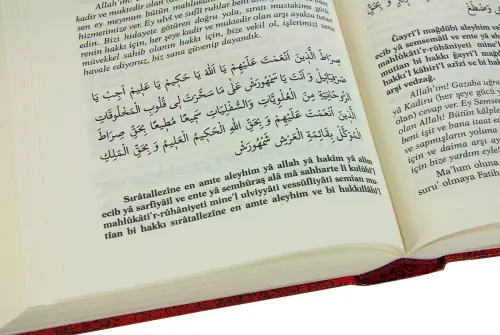 Allah'ım!
kadir ve muktedir olan
sen ey meymun bütün mahlûkat
hizmetimize ver. Ey ulvi ve sufli ruhlar beni
edin. Bizi hidayete götüren doğru yola, sıratı mustakime göt
renin hakkı için, her şeye kadir ve muktedir olan arşı ayakta tutan
müvekkel sahib olanın hakkı için, bize vekil ol, işlerimizi sana
havale ediyoruz, biz sana güvenip dayandık.
صِرَاطَ الَّذِينَ اَنْعَمْتَ عَلَيْهِمْ يَا اَللّٰهُ يَا حَكِيمُ يَا عَلِيمُ اَجِبْ يَا
صَرْفَيَائِيلُ وَ اَنْتَ يَا سَمْهُورَشُ عَلٰى مَا سَخَّرْتَ لِى قُلُوبَ الْمَخْلُوقَاتِ
الرُّوحَانِيَّةِ مِنَ الْعُلْوِيَّاتِ وَالسُّفْلِيَّاتِ سَمِيعًا مُطِيعًا بِحَقِّ صِرَاطَ
الَّذِينَ اَنْعَمْتَ عَلَيْهِمْ وَ بِحَقِّ اللّٰهِ الْحَكِيمِ الْعَلِيمِ وَ بِحَقِّ الْمَلِكِ
الْمُوَكَّلِ بِقَائِمَةِ الْعَرْشِ شَمْهُورَشُ
Sıratallezîne en amte aleyhim yâ allah yâ hakîm yâ alîm
ecib yâ sarfiyâil ve ente yâ semhûraş alâ mâ sabharte lî kulûbi'l
mahlûkâti'r-rûhâniyeti mine'l ulviyyâti vessüfliyâti semîan mu-
tîan bi hakkı sıratallezîne en amte aleyhim ve bi hakkıllâhi'l
Ğayri'l mağdûbi aleyhim
ecib yâ semsemâîl ve ente
mahlûkâti'r-rûhâniyeti m
mutîan bi hakkı ğayri'l ma
hakkı'l kâhiri'l azîzi ve bi hak
arşi vedzağ.
Allah'ım! Gazaba uğra
ya Kadiru (her şeye gücü y
olan) cevap ver. Ey Semse
olan Allah! Bütün kâlple
beni işit ve bana itaat ed
ve sapmışların yoluna
için ve daima arşı ay
için bize yardım eyle!
Ma'lum oluna
suru' olmaya Fatih